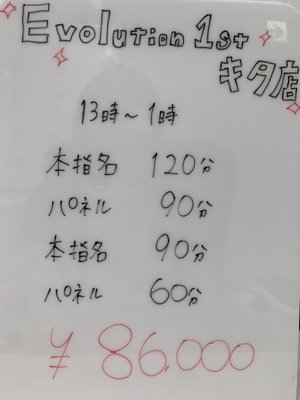 Evolution 1st
キタ店
13時〜1時
本指名 120分
パネル 90分
本指名 90分
パネル 60分
¥86.000